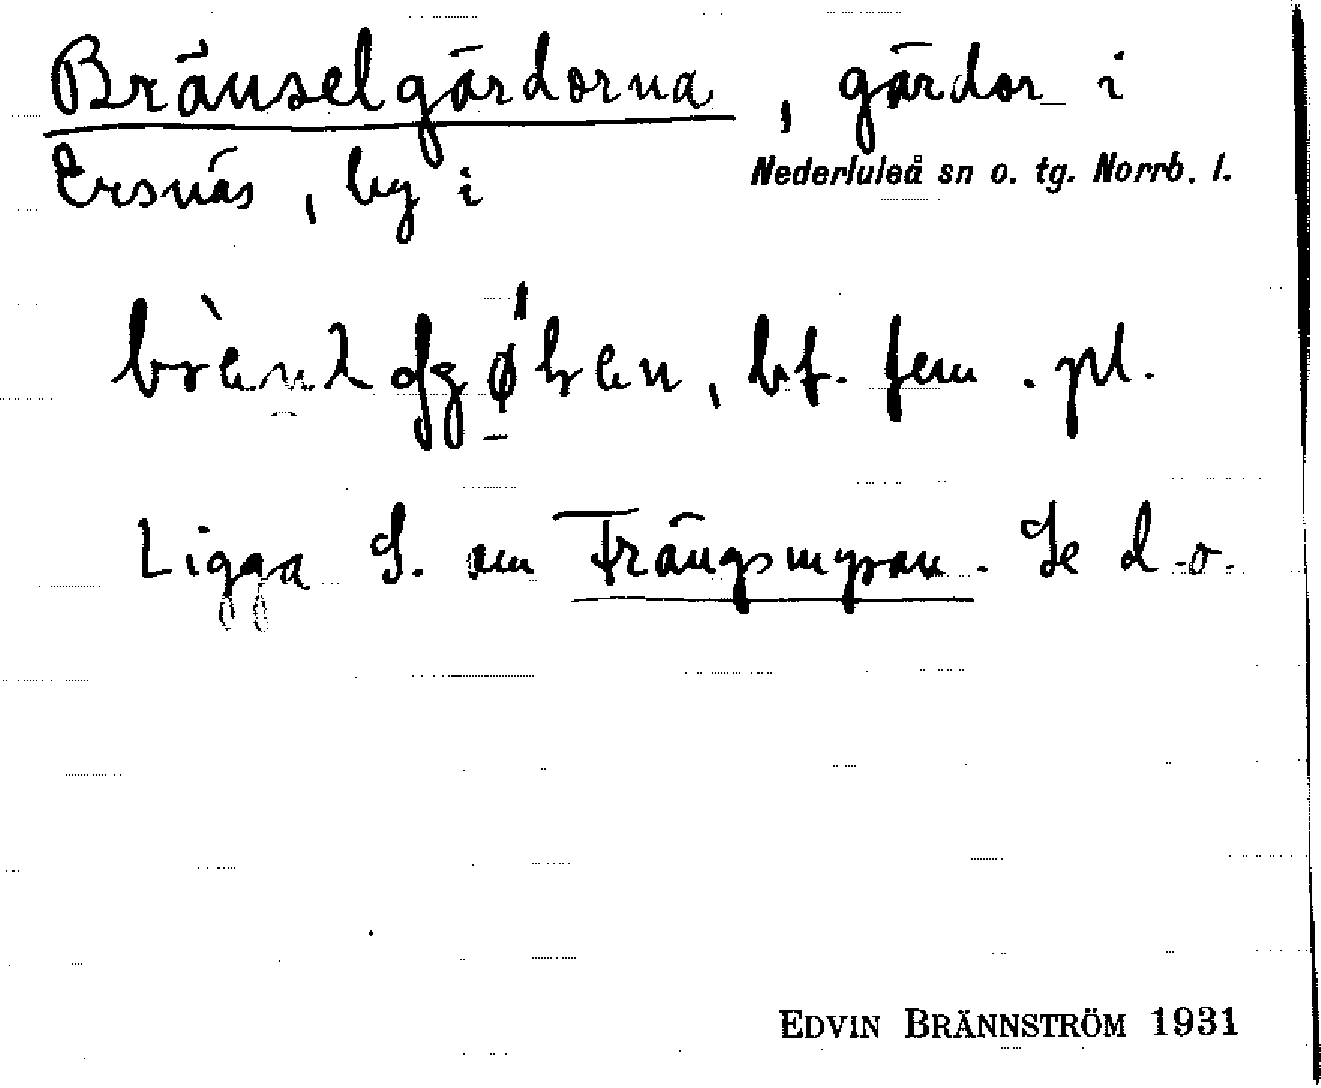 Bränselgärdorna, gärdor i
Ersnäs, by i Nederluleå sn o. tg. Norrb. l.
bf. fem. pl.
Ligga S. om Trängsmyran. Se d.o.
EDVIN BRÄNNSTRÖM 1931